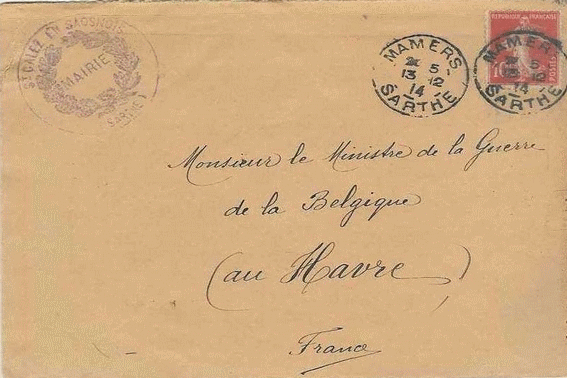 ST CALEZ EN SAOSNOIS
MAIRIE
(SARTHE)
MAMERS
2* 5-
13 12
14
SARTHE
REPUBLIQUE FRANÇAISE
10
POSTES
MAMERS
5-
13 12
14
SARTHE
Monsieur le Ministre de la Guerre
de la Belgique
(au Havre)
France